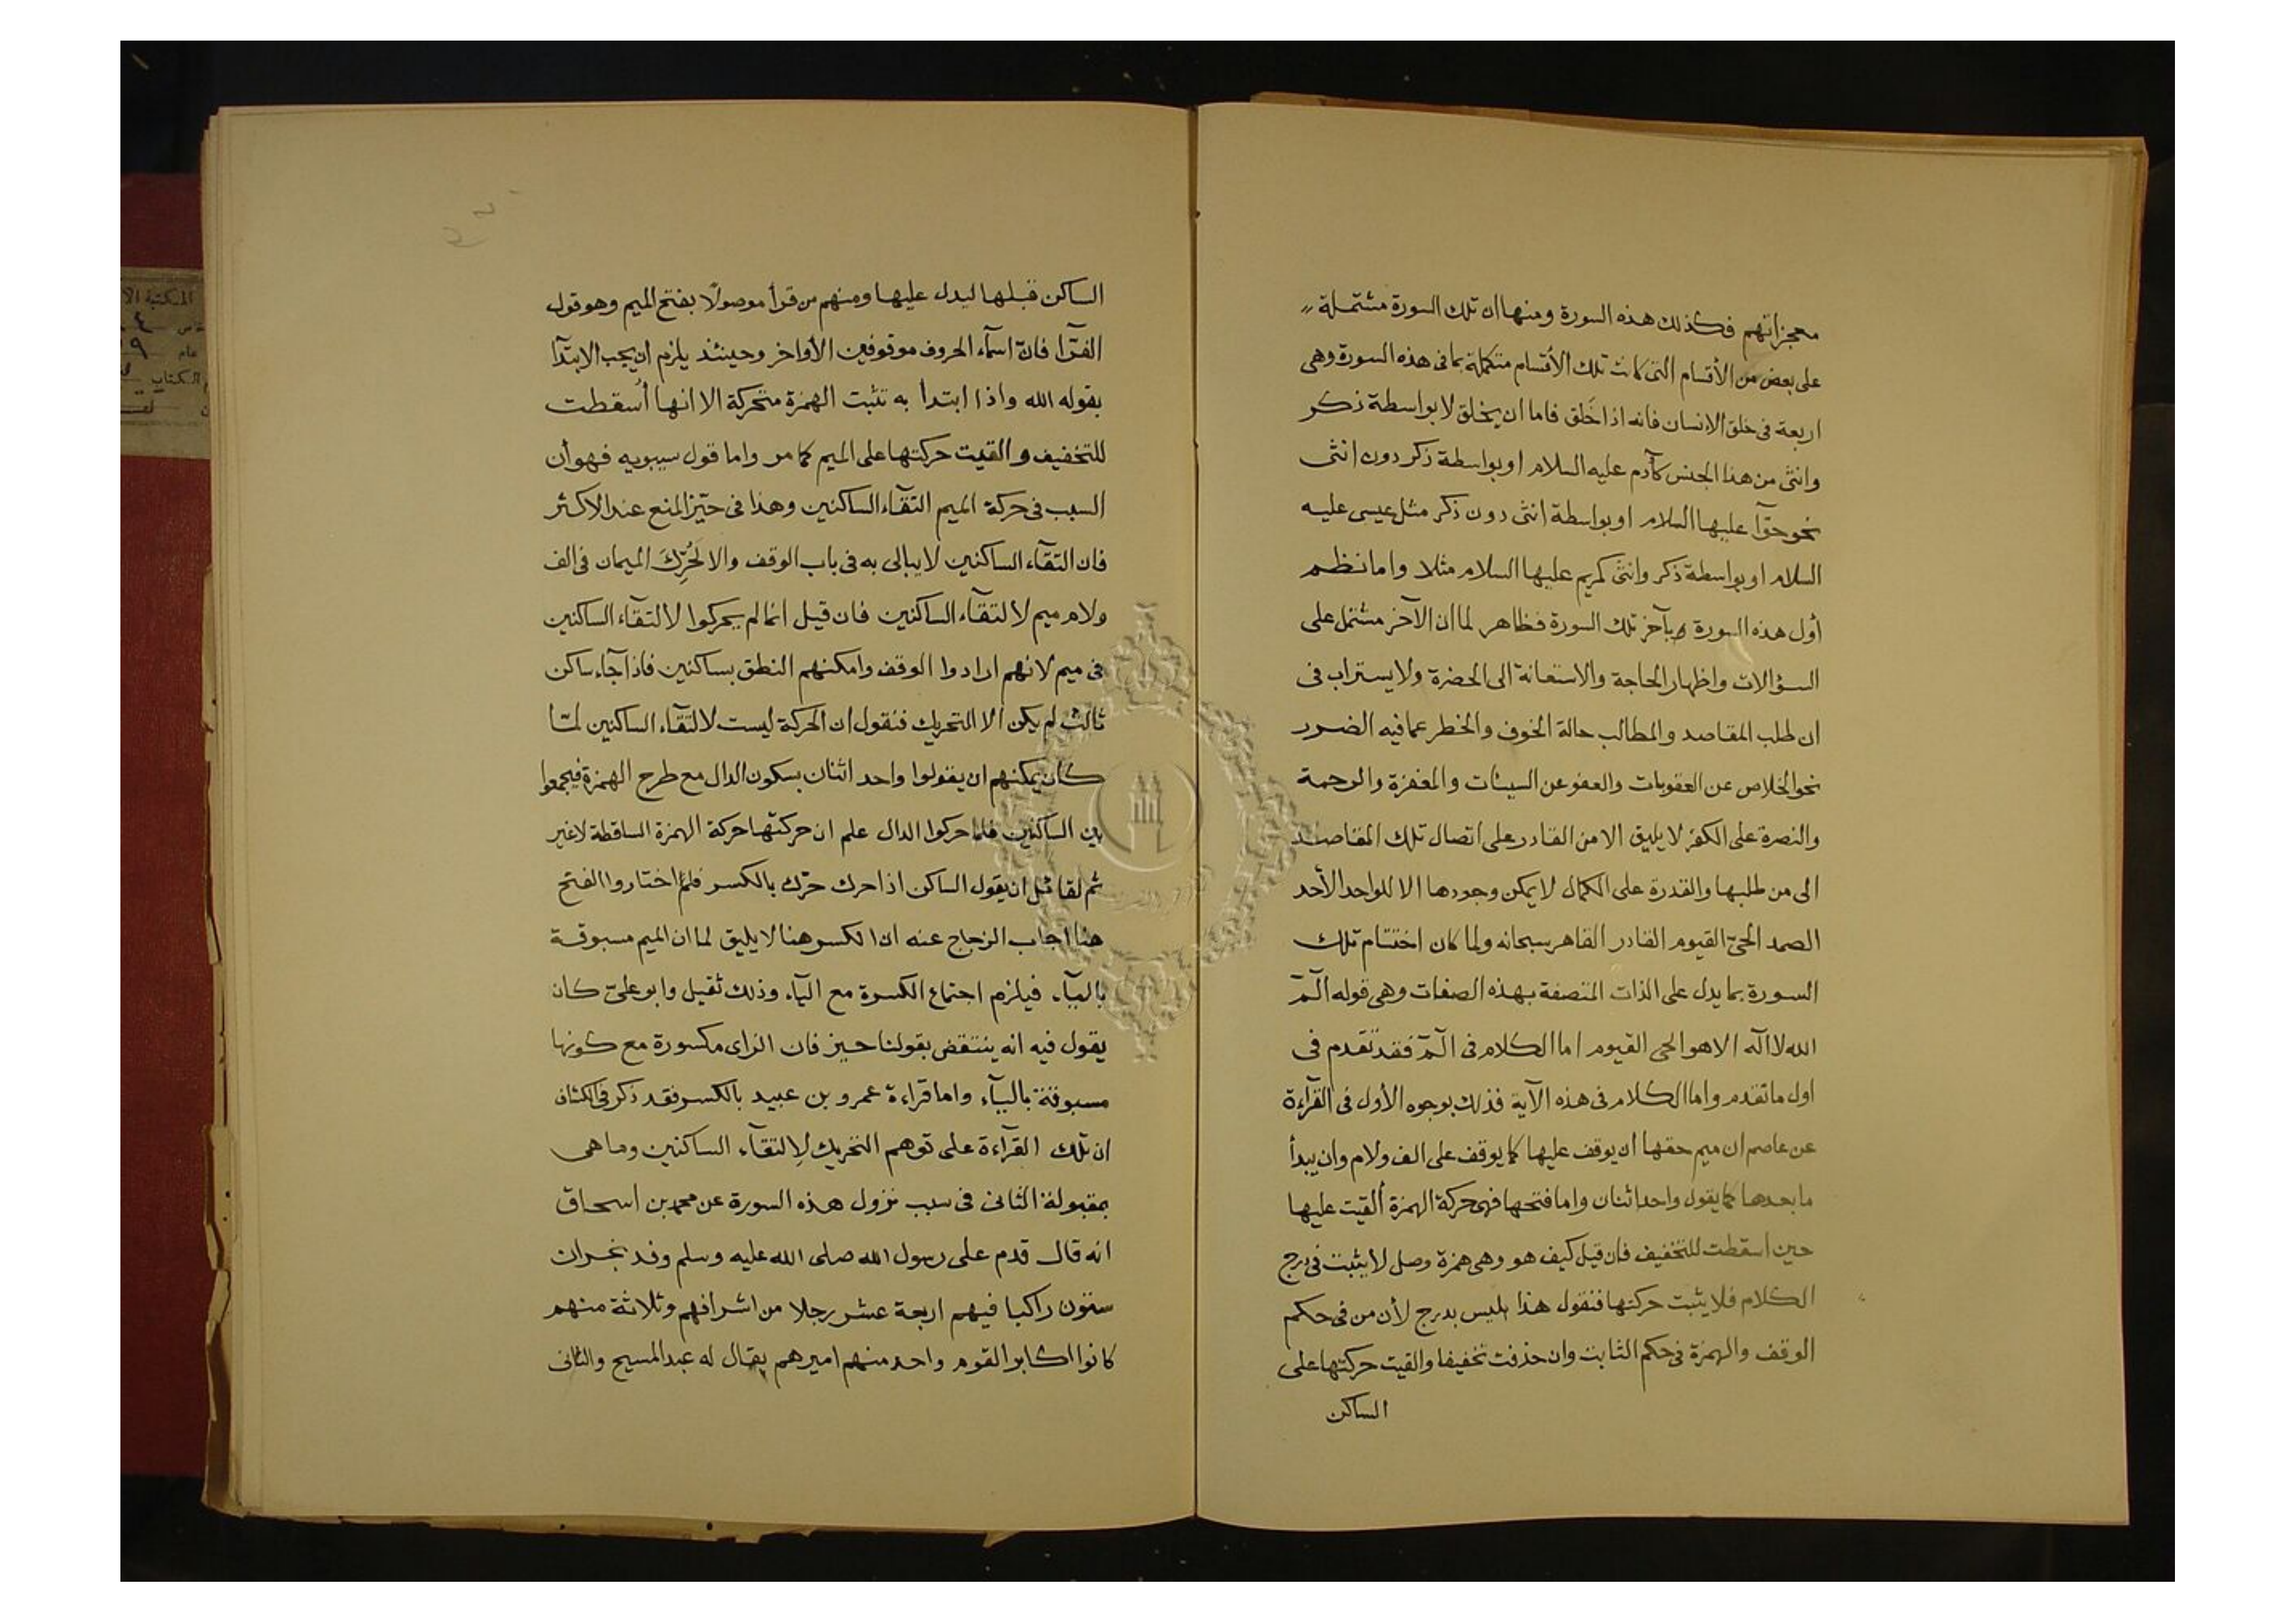 معجزاتهم فكذلك هذه السورة ومنها ان تلك السورة مشتملة
على بعض من الأقسام التى كانت تلك الأقسام متكملة بما فى هذه السورة وهى
اربعة فى خلق الانسان فانه اذا خَلق فاما ان يخلق لا بواسطة ذكر
وانثى من هذا الجنس كآدم عليه السلام او بواسطة ذكر دون انثى
نحو حوّآ عليها السلام او بواسطة انثى دون ذكر مثل عيسى عليه
السلام او بواسطة ذكر وانثى كمريم عليها السلام مثلا واما نظم
أول هذه السورة بآخر تلك السورة فظاهر لما ان الآخر مشتمل على
السؤالات واظهار الحاجة والاستعانة الى الحضرة ولا يستراب فى
ان طلب المقاصد والمطالب حالة الخوف والخطر عما فيه الضرر
نحو الخلاص عن العقوبات والعفو عن السيئات والمغفرة والرحمة
والنصرة على الكفر لا يليق الا من القادر على اتصال تلك المقاصد
الى من طلبها والقدرة على الكمال لا يمكن وجودها الا للواحد الأحد
الصمد الحىّ القيوم القادر القاهر سبحانه ولما كان اختتام تلك
السورة بما يدل على الذات المتصفة بهذه الصفات وهى قوله الٓمٓ
الله لا اله الا هو الحى القيوم اما الكلام فى الٓمٓ فقد تقدم فى
اول ما تقدم واما الكلام فى هذه الآية فذلك بوجوه الأول فى القرآءة
عن عاصم ان ميم حقها ان يوقف عليها كما يوقف على الف ولام وان يبدأ
ما بعدها كما يقول واحد اثنان واما فتحها فهى حركة الهمزة ألقيت عليها
حين اسقطت للتخفيف فان قيل كيف هو وهى همزة وصل لا يثبت فى درج
الكلام فلا يثبت حركتها فنقول هذا ليس بدرج لأن من فى حكم
الوقف والهمزة فى حكم الثابت وان حذفت تخفيفا والقيت حركتها على
الساكن
الساكن قبلها ليدل عليها ومنهم من قرأ موصولًا بفتح الميم وهو قول
الفرّآ فانّ اسمآء الحروف موقوفين الأواخر وحينئذ يلزم ان يجب الابتدآ
بقوله الله واذا ابتدأ به تثبت الهمزة متحركة الا انها أسقطت
للتخفيف والقيت حركتها على الميم كما مر واما قول سيبويه فهو أن
السبب فى حركة الميم التقآء الساكنين وهذا فى حيّز المنع عند الاكثر
فان التقآء الساكنين لا يبالى به فى باب الوقف والا لَحُرِّكَ الميمان فى الف
ولام ميم لا لتقآء الساكنين فان قيل انما لم يحركوا لالتقآء الساكنين
فى ميم لانهم ارادوا الوقف وامكنهم النطق بساكنين فاذا جآء ساكن
ثالث لم يكن الا التحريك فنقول ان الحركة ليست لالتقآء الساكنين لمّا
كان يمكنهم ان يقولوا واحد اثنان بسكون الدال مع طرح الهمزة فيجمعوا
بين الساكنين فلما حركوا الدال علم ان حركتها حركة الهمزة الساقطة لا غير
ثم لقائل ان يقول الساكن اذا حرك حرّك بالكسر فلم اختاروا الفتح
هنا اجاب الزجاج عنه ان الكسر هنا لا يليق لما ان الميم مسبوقة
باليآء فيلزم اجتماع الكسرة مع اليآء وذلك ثقيل وابو علىّ كان
يقول فيه انه ينتقض بقولنا حيز فان الزاى مكسورة مع كونها
مسبوقة باليآء واما قرآءة عمرو بن عبيد بالكسر فقد ذكر فى الكشاف
ان تلك القرآءة على توهم التحريك لالتقآء الساكنين وما هى
بمقبولة الثانى فى سبب نزول هذه السورة عن محمد بن اسحاق
انه قال قدم على رسول الله صلى الله عليه وسلم وفد نجران
ستون راكبا فيهم اربعة عشر رجلا من اشرافهم وثلاثة منهم
كانوا اكابر القوم واحد منهم اميرهم يقال له عبد المسيح والثانى